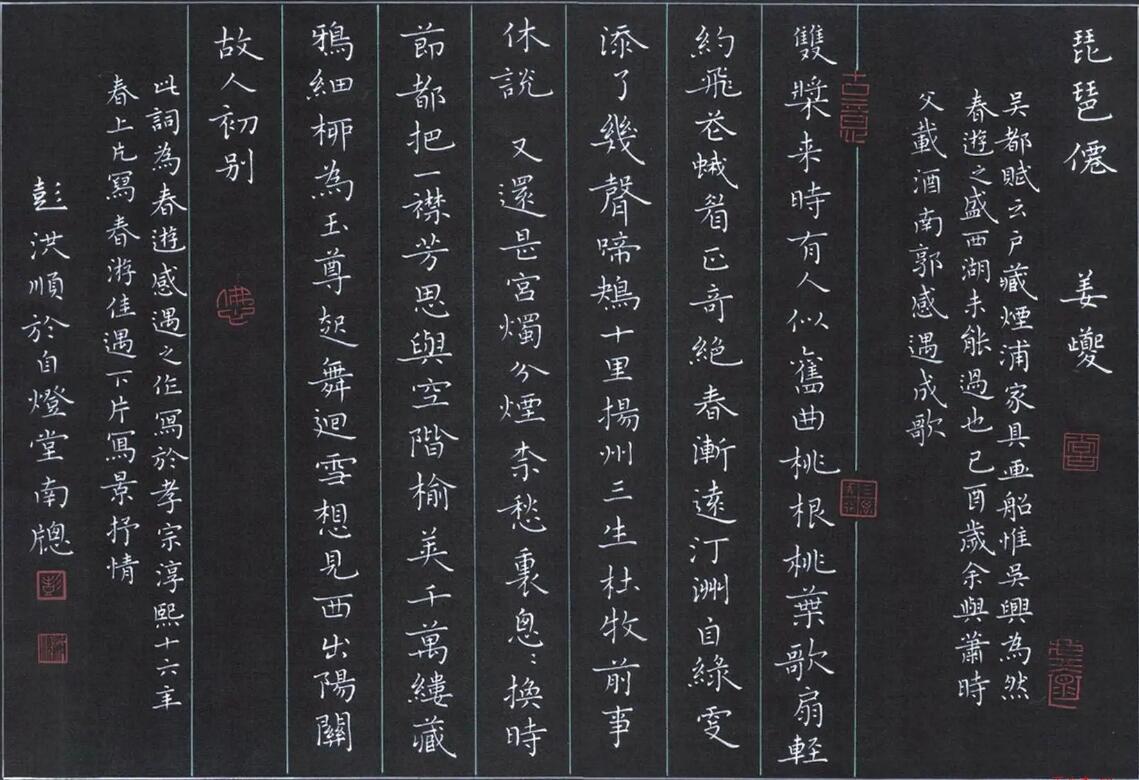 琵琶僊 姜夔
吳都賦云戶藏煙浦家具画船惟吳興為然
春遊之盛西湖未能過也己酉歲余與蕭時
父載酒南郭感遇成歌
雙槳来時有人似舊曲桃根桃葉歌扇輕
約飛花蛾眉正奇絕春漸遠汀洲自綠更
添了幾聲啼鴂十里揚州三生杜牧前事
休說 又還是宮燭分煙柰愁裏怱〻換時
節都把一襟芳思與空階榆莢千萬縷藏
鴉細柳為玉尊起舞迴雪想見西出陽關
故人初别
此詞為春遊感遇之作寫於孝宗淳熙十六年
春上片寫春游佳遇下片寫景抒情
彭洪順於自燈堂南牕